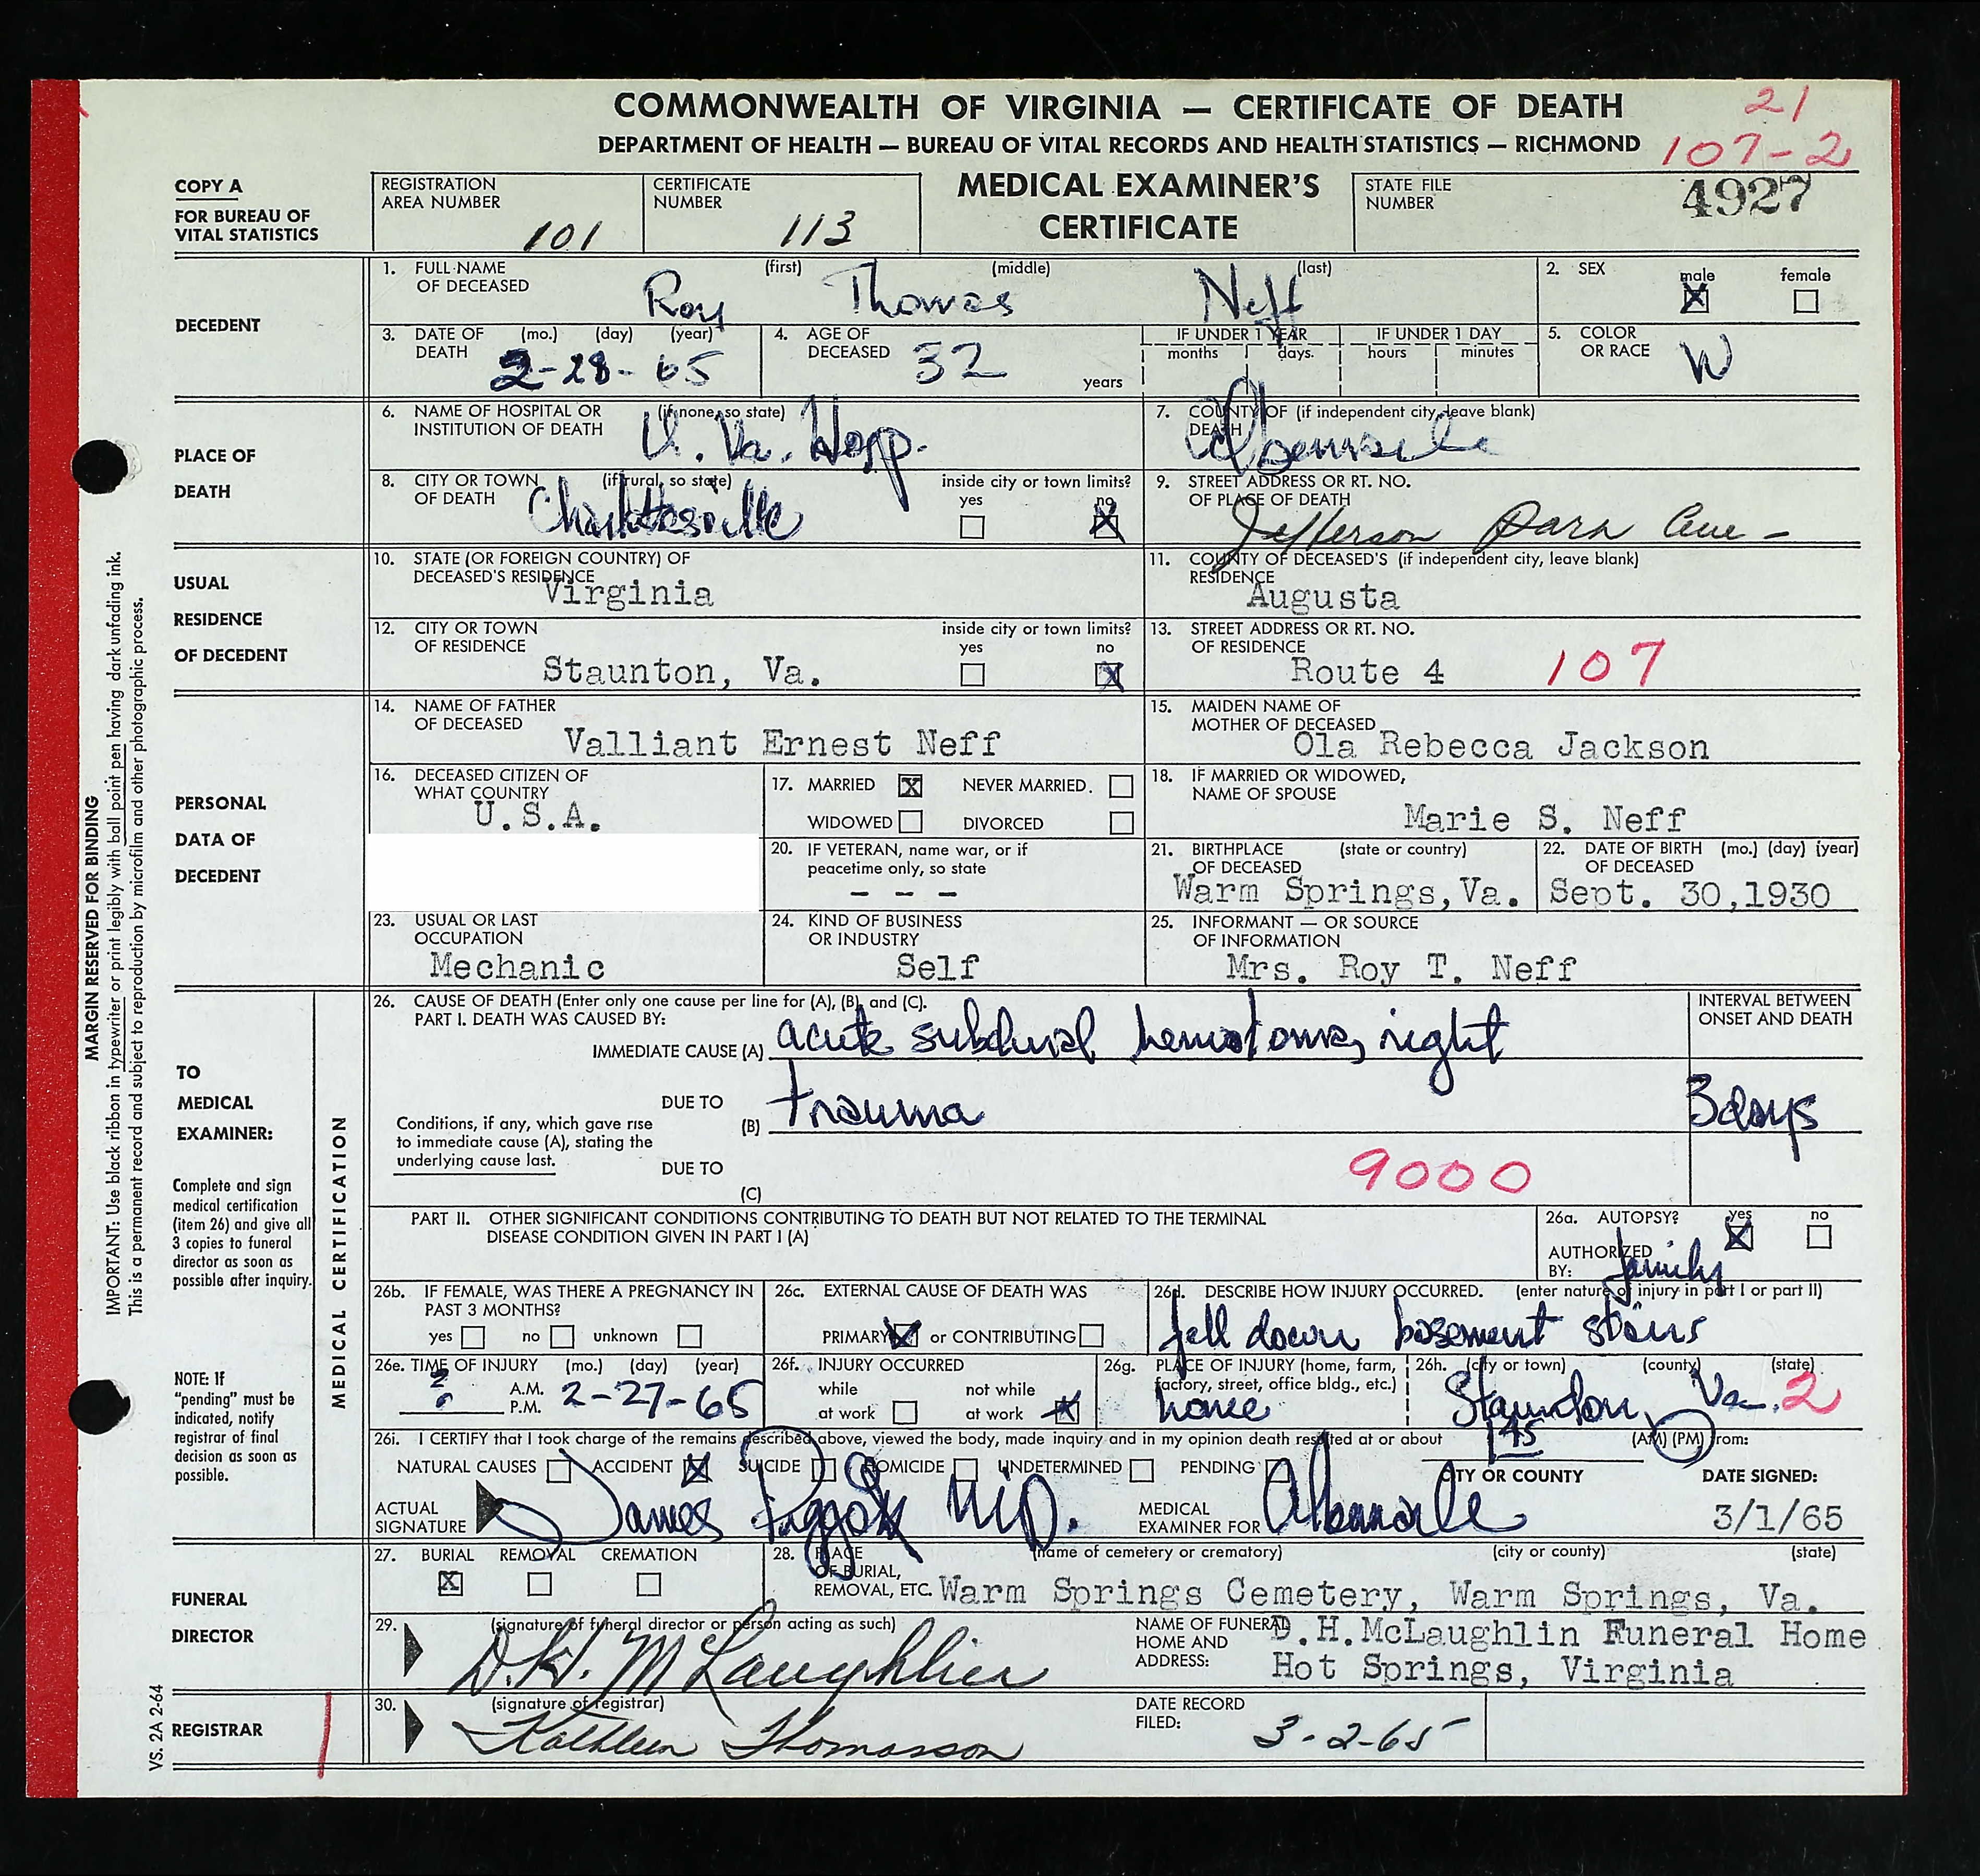 COMMONWEALTH OF VIRGINIA — CERTIFICATE OF DEATH
21
DEPARTMENT OF HEALTH — BUREAU OF VITAL RECORDS AND HEALTH STATISTICS — RICHMOND
107-2
COPY A
FOR BUREAU OF
VITAL STATISTICS
REGISTRATION
AREA NUMBER
101
CERTIFICATE
NUMBER
113
MEDICAL EXAMINER'S
CERTIFICATE
STATE FILE
NUMBER
4927
DECEDENT
1. FULL NAME
OF DECEASED
(first) (middle) (last)
Roy Thomas Neff
2. SEX
male female
X
3. DATE OF (mo.) (day) (year)
DEATH
2-28-65
4. AGE OF
DECEASED
32
years
IF UNDER 1 YEAR
months days.
IF UNDER 1 DAY
hours minutes
5. COLOR
OR RACE
W
PLACE OF
DEATH
6. NAME OF HOSPITAL OR (if none, so state)
INSTITUTION OF DEATH
U. Va. Hosp.
7. COUNTY OF (if independent city, leave blank)
DEATH
Albemarle
8. CITY OR TOWN (if rural, so state)
OF DEATH
Charlottesville
inside city or town limits?
yes no
X
9. STREET ADDRESS OR RT. NO.
OF PLACE OF DEATH
Jefferson Park Ave -
USUAL
RESIDENCE
OF DECEDENT
10. STATE (OR FOREIGN COUNTRY) OF
DECEASED'S RESIDENCE
Virginia
11. COUNTY OF DECEASED'S (if independent city, leave blank)
RESIDENCE
Augusta
12. CITY OR TOWN
OF RESIDENCE
Staunton, Va.
inside city or town limits?
yes no
X
13. STREET ADDRESS OR RT. NO.
OF RESIDENCE
Route 4
107
PERSONAL
DATA OF
DECEDENT
14. NAME OF FATHER
OF DECEASED
Valliant Ernest Neff
15. MAIDEN NAME OF
MOTHER OF DECEASED
Ola Rebecca Jackson
16. DECEASED CITIZEN OF
WHAT COUNTRY
U.S.A.
17. MARRIED X NEVER MARRIED.
WIDOWED DIVORCED
18. IF MARRIED OR WIDOWED,
NAME OF SPOUSE
Marie S. Neff
20. IF VETERAN, name war, or if
peacetime only, so state
- - -
21. BIRTHPLACE (state or country)
OF DECEASED
Warm Springs,Va.
22. DATE OF BIRTH (mo.) (day) (year)
OF DECEASED
Sept. 30,1930
23. USUAL OR LAST
OCCUPATION
Mechanic
24. KIND OF BUSINESS
OR INDUSTRY
Self
25. INFORMANT — OR SOURCE
OF INFORMATION
Mrs. Roy T. Neff
MARGIN RESERVED FOR BINDING
IMPORTANT: Use black ribbon in typewriter or print legibly with ball point pen having dark unfading ink.
This is a permanent record and subject to reproduction by microfilm and other photographic process.
TO
MEDICAL
EXAMINER:
Complete and sign
medical certification
(item 26) and give all
3 copies to funeral
director as soon as
possible after inquiry.
NOTE: If
"pending" must be
indicated, notify
registrar of final
decision as soon as
possible.
MEDICAL CERTIFICATION
26. CAUSE OF DEATH (Enter only one cause per line for (A), (B), and (C).
PART I. DEATH WAS CAUSED BY:
IMMEDIATE CAUSE (A)
acute subdural hematoma, right
INTERVAL BETWEEN
ONSET AND DEATH
DUE TO
(B)
trauma
3 days
Conditions, if any, which gave rise
to immediate cause (A), stating the
underlying cause last.
DUE TO
(C)
9000
PART II. OTHER SIGNIFICANT CONDITIONS CONTRIBUTING TO DEATH BUT NOT RELATED TO THE TERMINAL
DISEASE CONDITION GIVEN IN PART I (A)
26a. AUTOPSY? yes no
X
AUTHORIZED
BY:
family
26b. IF FEMALE, WAS THERE A PREGNANCY IN
PAST 3 MONTHS?
yes no unknown
26c. EXTERNAL CAUSE OF DEATH WAS
PRIMARY X or CONTRIBUTING
26d. DESCRIBE HOW INJURY OCCURRED. (enter nature of injury in part I or part II)
fell down basement stairs
26e. TIME OF INJURY (mo.) (day) (year)
? A.M.
P.M.
2-27-65
26f. INJURY OCCURRED
while not while
at work at work X
26g. PLACE OF INJURY (home, farm,
factory, street, office bldg., etc.)
home
26h. (city or town) (county) (state)
Staunton, Va. 2
26i. I CERTIFY that I took charge of the remains described above, viewed the body, made inquiry and in my opinion death resulted at or about 1 45 (AM) (PM) from:
NATURAL CAUSES ACCIDENT X SUICIDE HOMICIDE UNDETERMINED PENDING
CITY OR COUNTY
DATE SIGNED:
ACTUAL
SIGNATURE
James M.D.
MEDICAL
EXAMINER FOR
Albemarle
3/1/65
FUNERAL
DIRECTOR
27. BURIAL REMOVAL CREMATION
X
28. PLACE
OF BURIAL,
REMOVAL, ETC.
(name of cemetery or crematory) (city or county) (state)
Warm Springs Cemetery, Warm Springs, Va.
29. (signature of funeral director or person acting as such)
D.H. McLaughlin
NAME OF FUNERAL
HOME AND
ADDRESS:
D.H.McLaughlin Funeral Home
Hot Springs, Virginia
REGISTRAR
30. (signature of registrar)
Kathleen Thomasson
DATE RECORD
FILED:
3-2-65
VS. 2A 2-64